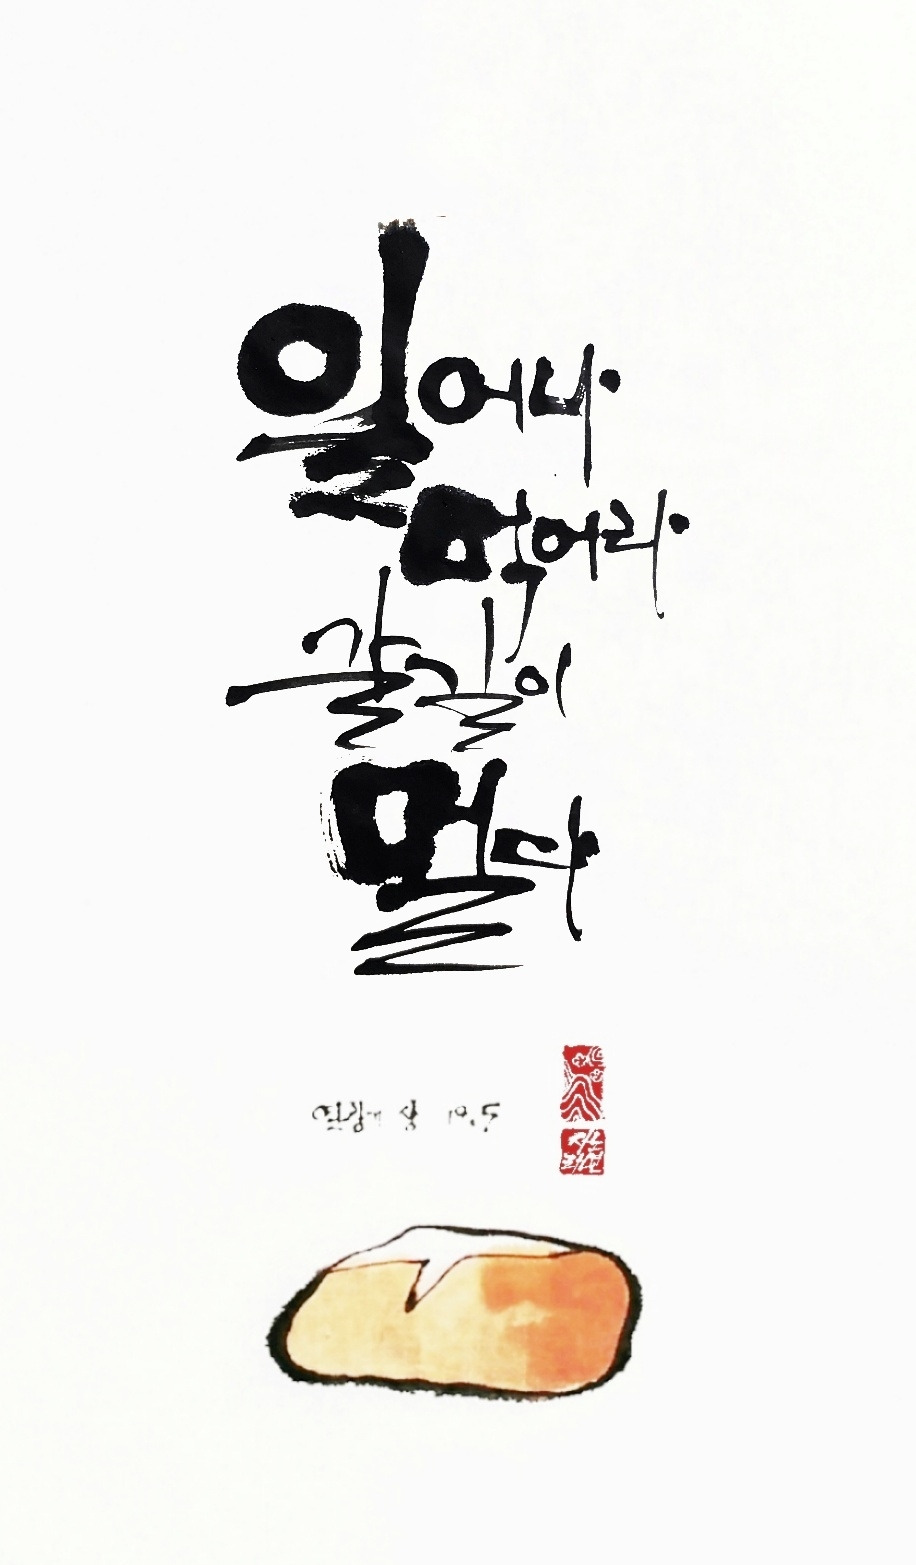 일어나
먹어라
갈길이
멀다
열왕기 상 19:5